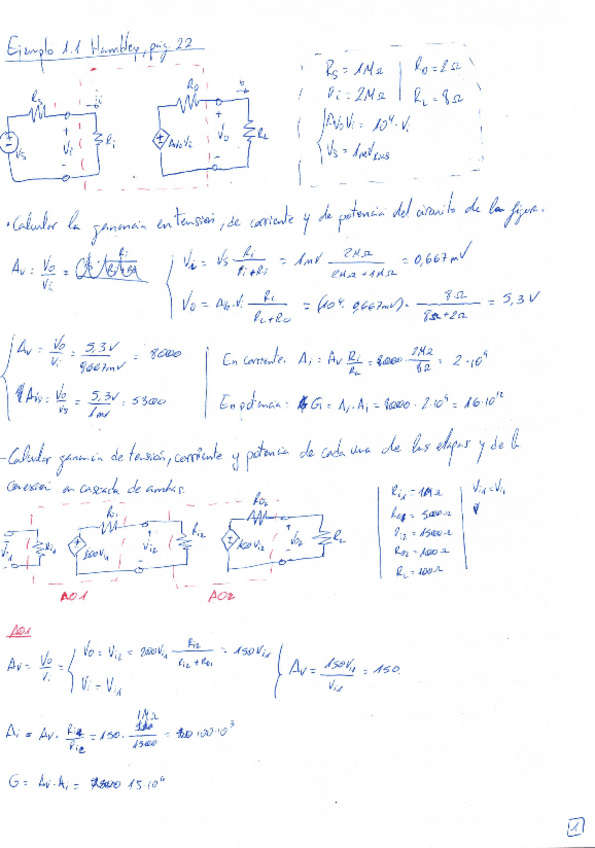 Ejemplo 1.1 Hambley, pág 22
Rs = 1MΩ | Ro = 2Ω
Ri = 2MΩ | RL = 8Ω
Avo Vi = 10⁴ · Vi
Vs = 1mVrms
Rs Vs Vi ii Ri Ro Avo Vi Vo RL
· Calcular la ganancia en tensión, de corriente y de potencia del circuito de la figura.
Av = Vo/Vi =
Vi = Vs Ri/(Ri+Ri) = 1mV 2MΩ/(2MΩ+1MΩ) = 0,667mV
Vo = Avo Vi RL/(RL+Ro) = (10⁴ · 0,667mV) · 8Ω/(8Ω+2Ω) = 5,3V
Av = Vo/Vi = 5,3V/0,667mV = 8000
Avs = Vo/Vs = 5,3V/1mV = 53000
En corriente: Ai = Av Ri/RL = 8000 · 2MΩ/8Ω = 2·10⁹
En potencia: G = Av · Ai = 8000 · 2·10⁹ = 16·10¹²
- Calcular ganancia de tensión, corriente y potencia de cada una de las etapas y de la
conexión en cascada de ambas.
Vi1 Ri1 Ro1 200Vi1 Vi2 Ri2 Ro2 100Vi2 Vo2 RL
Ri1 = 1MΩ | Vi1 = Vi
Ro1 = 500Ω
Ri2 = 1500Ω
Ro2 = 100Ω
RL = 100Ω
AO1 AO2
AO1
Av = Vo/Vi = Vo = Vi2 = 200Vi1 Ri2/(Ri2+Ro1) = 150Vi1
Vi = Vi1
Av = 150Vi1/Vi1 = 150.
Ai = Av · Ri1/Ri2 = 150 · 1MΩ/1500 = 100·10³
G = Av · Ai = 15·10⁶
1